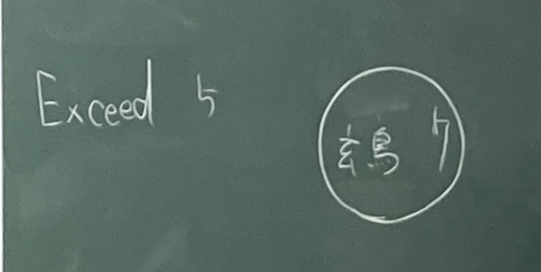 Exceed 5
玄鳥 7